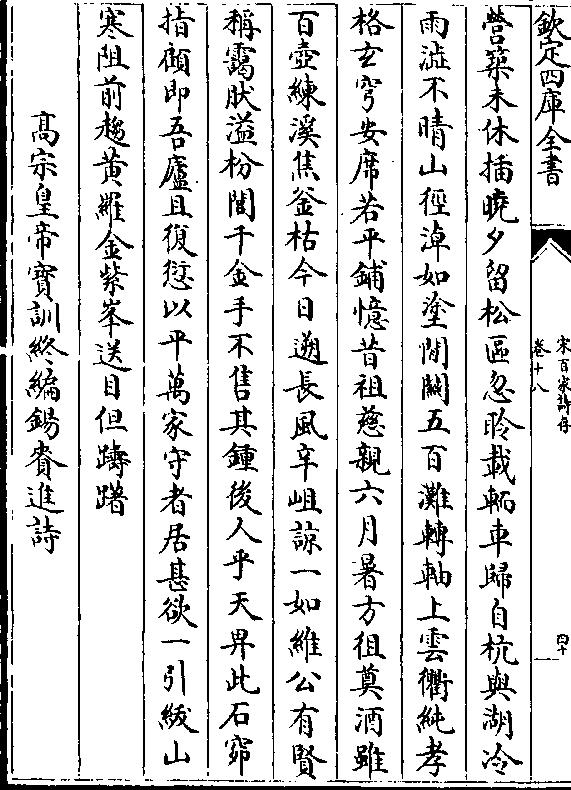 欽定四庫全書
宋百家詩存
卷十八
四十
營築未休插曉夕留松區忽聆載輀車歸自杭與湖冷
雨澁不晴山徑淖如塗閒闗五百灘轉軸上雲衢純孝
格玄穹安席若平鋪憶昔祖慈親六月暑方徂奠酒雖
百壺練溪焦釜枯今日遡長風辛岨諒一如維公有賢
稱靄肰溢枌閭千金手不售其鍾後人乎天畀此石窌
指顧即吾廬且復愆以平萬家守者居甚欲一引紼山
寒阻前趍黄羅金紫峯送目但躊躇
髙宗皇帝寳訓終編錫賚進詩